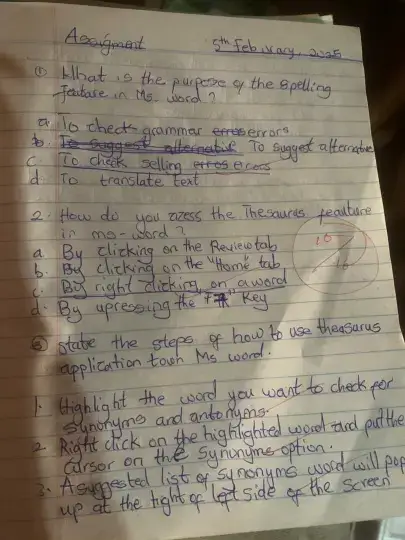 Assignment 5th Febuary, 2025
① What is the purpose of the spelling
feature in Ms. word?
a. To check grammar erros errors
b. To suggest alternative To suggest alternative
c. To check selling erros erors
d. To translate text
2. How do you acess the Thesaurus feauture
in ms-word?
a By clicking on the Review tab
b. By clicking on the "Home" tab
c. By right clicking on a word
d. By upressing the "F7" Key
10
10
③ State the steps of how to use theasarus
application town Ms word.
1. Highlight the word you want to check for
synonyms and antonyms.
2. Right click on the highlighted word and put the
cursor on the synonyms option.
3. A suggested list of synonyms word will pop
up at the right of left side of the screen